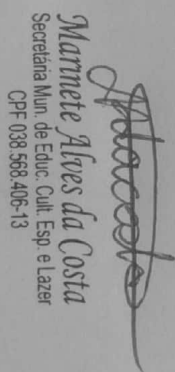 Marinete Alves da Costa
Secretária Mun. de Educ. Cult. Esp. e Lazer
CPF 038.568.406-13